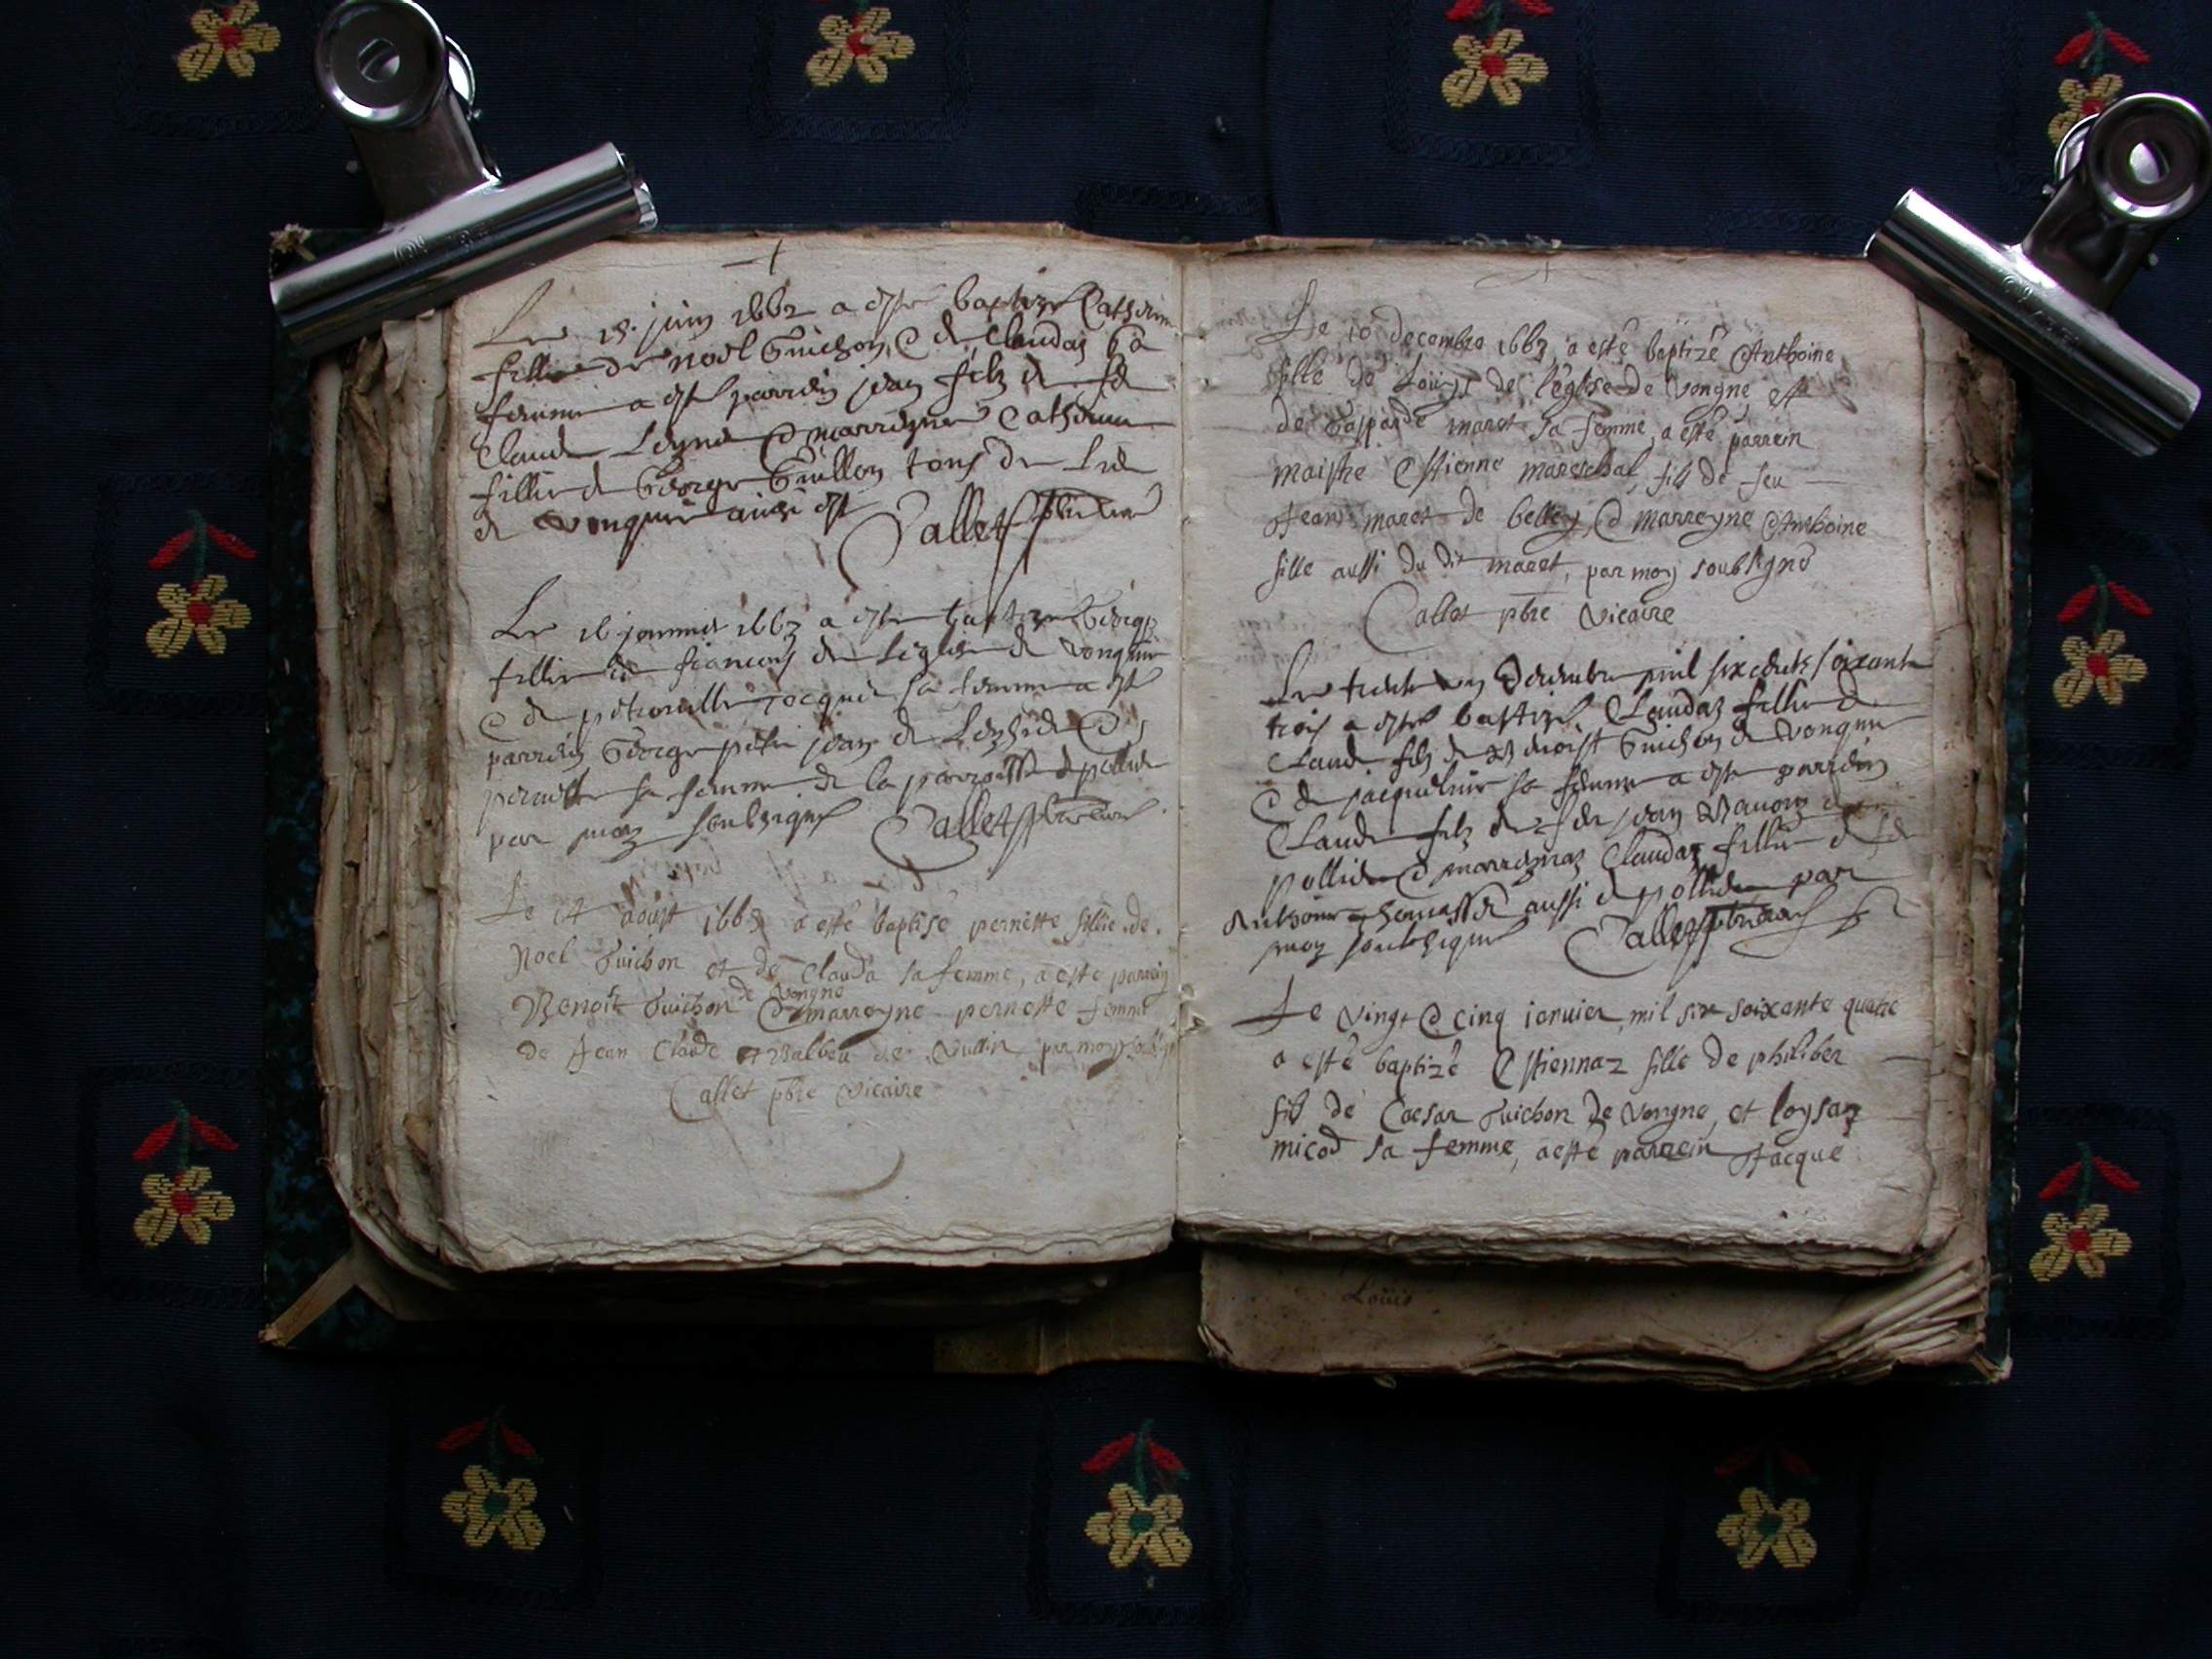 Le 18. juin 1662 a este baptize Catherine
fillie de noel Guichon & de Claudaz sa
femme a este parrein jean filz de
Claude & marreyne Catherine
fillie de George Guillon tous de
de Vongnie ainsi est
Callet pbre vicaire
Le 16 janvier 1663 a este baptize George
fillie de francoys de Leglise de Vongnie
& de petronille sa femme a este
parrein George jean de &
pernette sa femme de la parroisse de pollieu
par moy soubsigne Callet pbre vicaire
Le 14 aoust 1663 a esté baptisé pernette fillie de
Noel Guichon et de Clauda sa femme, a esté parrein
Benoit Guichon de Vongne & marreyne pernette femme
de Jean Claude par moy
Callet pbre vicaire
Le 10 decembre 1663 a esté baptizé Anthoine
fille de Louys de l'eglise de Vongne et
de Gasparde maret sa femme, a esté parrein
maistre Estienne mareschal, fils de feu
Jean maret de belley & marreyne Anthoine
fille aussi du dit maret, par moy soubsigné
Callet pbre vicaire
Le trente un Decembre mil six cents soixante
trois a este baptize Claudaz fillie de
Claude filz de Benoist Guichon de Vongnie
& de jacqueline sa femme a este parrein
Claude filz de jean
pollieu & marreynaz Claudaz fillie de
Anthoine aussi de pollieu par
moy soubsigne Callet pbre vicaire
Le vingt & cinq ianvier, mil six soixante quatre
a esté baptizé Estiennaz fille de philiber
fils de Caesar Guichon de Vongne, et loysaz
micod sa femme, a esté parrein Jacque
Louis